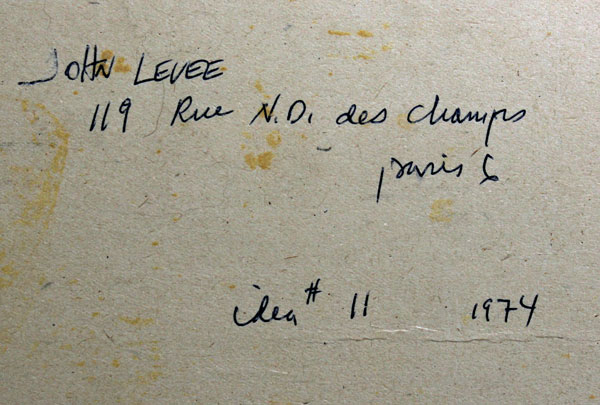 JOHN LEVEE
119 Rue N.D. des champs
paris 6
idea # 11 1974